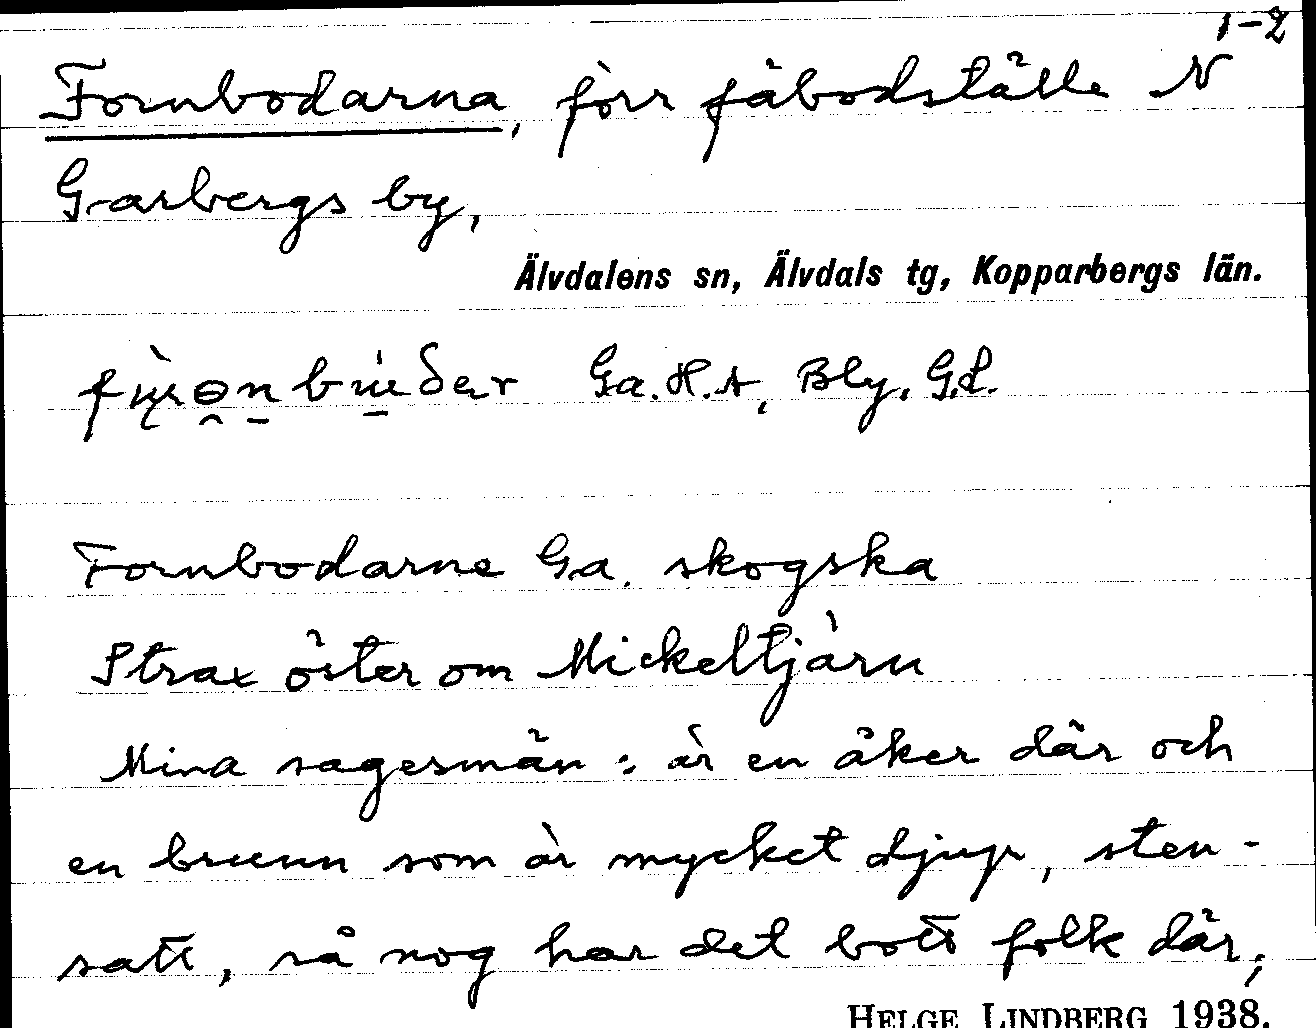 1-2
Fornbodarna, förr fäbodställe N
Garbergs by,
Älvdalens sn, Älvdals tg, Kopparbergs län.
Ga. H.A, Bly. G.L.
Fornbodarne Ga. skogska
Strax öster om Mickeltjärn
Mina sagesmän: är en åker där och
en brunn som är mycket djup, sten-
satt, så nog har det bott folk där;
HELGE LINDBERG 1938.